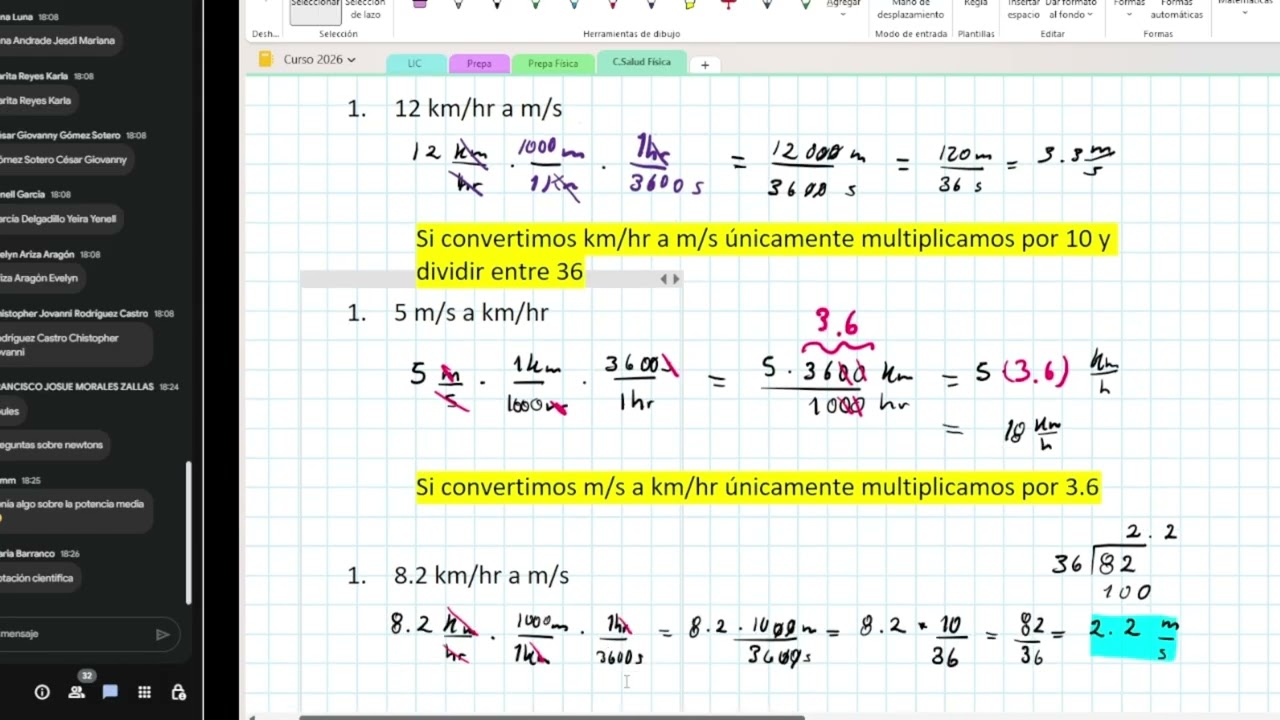 na Luna 18:08
na Andrade Jesdi Mariana
arita Reyes Karla 18:08
arita Reyes Karla
sar Giovanny Gómez Sotero 18:08
ómez Sotero César Giovanny
nell Garcia 18:08
arcía Delgadillo Yeira Yenell
elyn Ariza Aragón 18:08
iza Aragón Evelyn
histopher Jovanni Rodríguez Castro 18:08
odríguez Castro Chistopher
ovanni
RANCISCO JOSUE MORALES ZALLAS 18:24
oules
eguntas sobre newtons
mm 18:25
enía algo sobre la potencia media
aria Barranco 18:26
otación cientifica
mensaje
32
Seleccionar
Selección
de lazo
Agregar
Mano de
desplazamiento
Regla
Insertar
espacio
Dar formato
al fondo
Formas
Formas
automáticas
Matemáticas
Desh...
Selección
Herramientas de dibujo
Modo de entrada
Plantillas
Editar
Formas
Curso 2026
LIC
Prepa
Prepa Física
C.Salud Física
+
1. 12 km/hr a m/s
12 km/hr · 1000 m/1 Km · 1hr/3600 s = 12 000 m/3600 s = 120 m/36 s = 3.3 m/s
Si convertimos km/hr a m/s únicamente multiplicamos por 10 y
dividir entre 36
1. 5 m/s a km/hr
3.6
5 m/s · 1km/1000m · 3600s/1hr = 5 · 3600 Km/1000 hr = 5 (3.6) Km/h
= 18 Km/h
Si convertimos m/s a km/hr únicamente multiplicamos por 3.6
2.2
36 82
100
1. 8.2 km/hr a m/s
8.2 Km/hr · 1000m/1km · 1hr/3600s = 8.2 · 1000 m/3600 s = 8.2 · 10/36 = 82/36 = 2.2 m/s